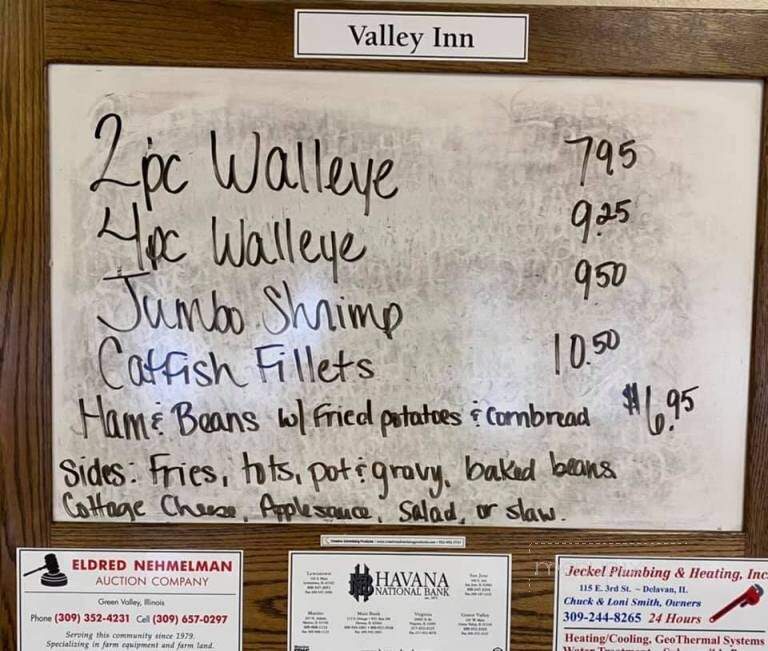 Valley Inn
2pc Walleye 795
4pc Walleye 9.25
Jumbo Shrimp 950
Catfish Fillets 10.50
Ham & Beans w/ Fried potatoes & Cornbread $6.95
Sides: Fries, tots, pot & gravy, baked beans
Cottage Cheese, Applesauce, Salad, or slaw.
ELDRED NEHMELMAN
AUCTION COMPANY
Green Valley, Illinois
Phone (309) 352-4231 Cell (309) 657-0297
Serving this community since 1979.
Specializing in farm equipment and farm land.
HAVANA
NATIONAL BANK
San Jose
Main Bank
Virginia
Green Valley
Jeckel Plumbing & Heating, Inc.
115 E. 3rd St. ~ Delavan, IL
Chuck & Loni Smith, Owners
309-244-8265 24 Hours
Heating/Cooling, GeoThermal Systems